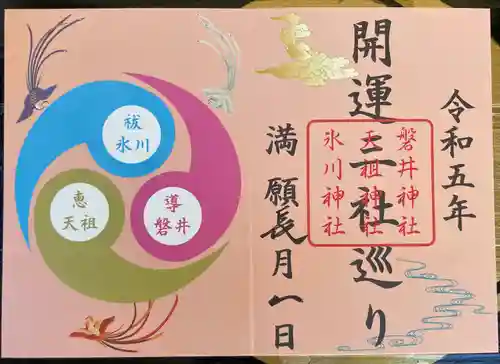 祓
氷川
恵
天祖
導
磐井
開運三社巡り
令和五年
満願
長月一日
磐井神社
天祖神社
氷川神社